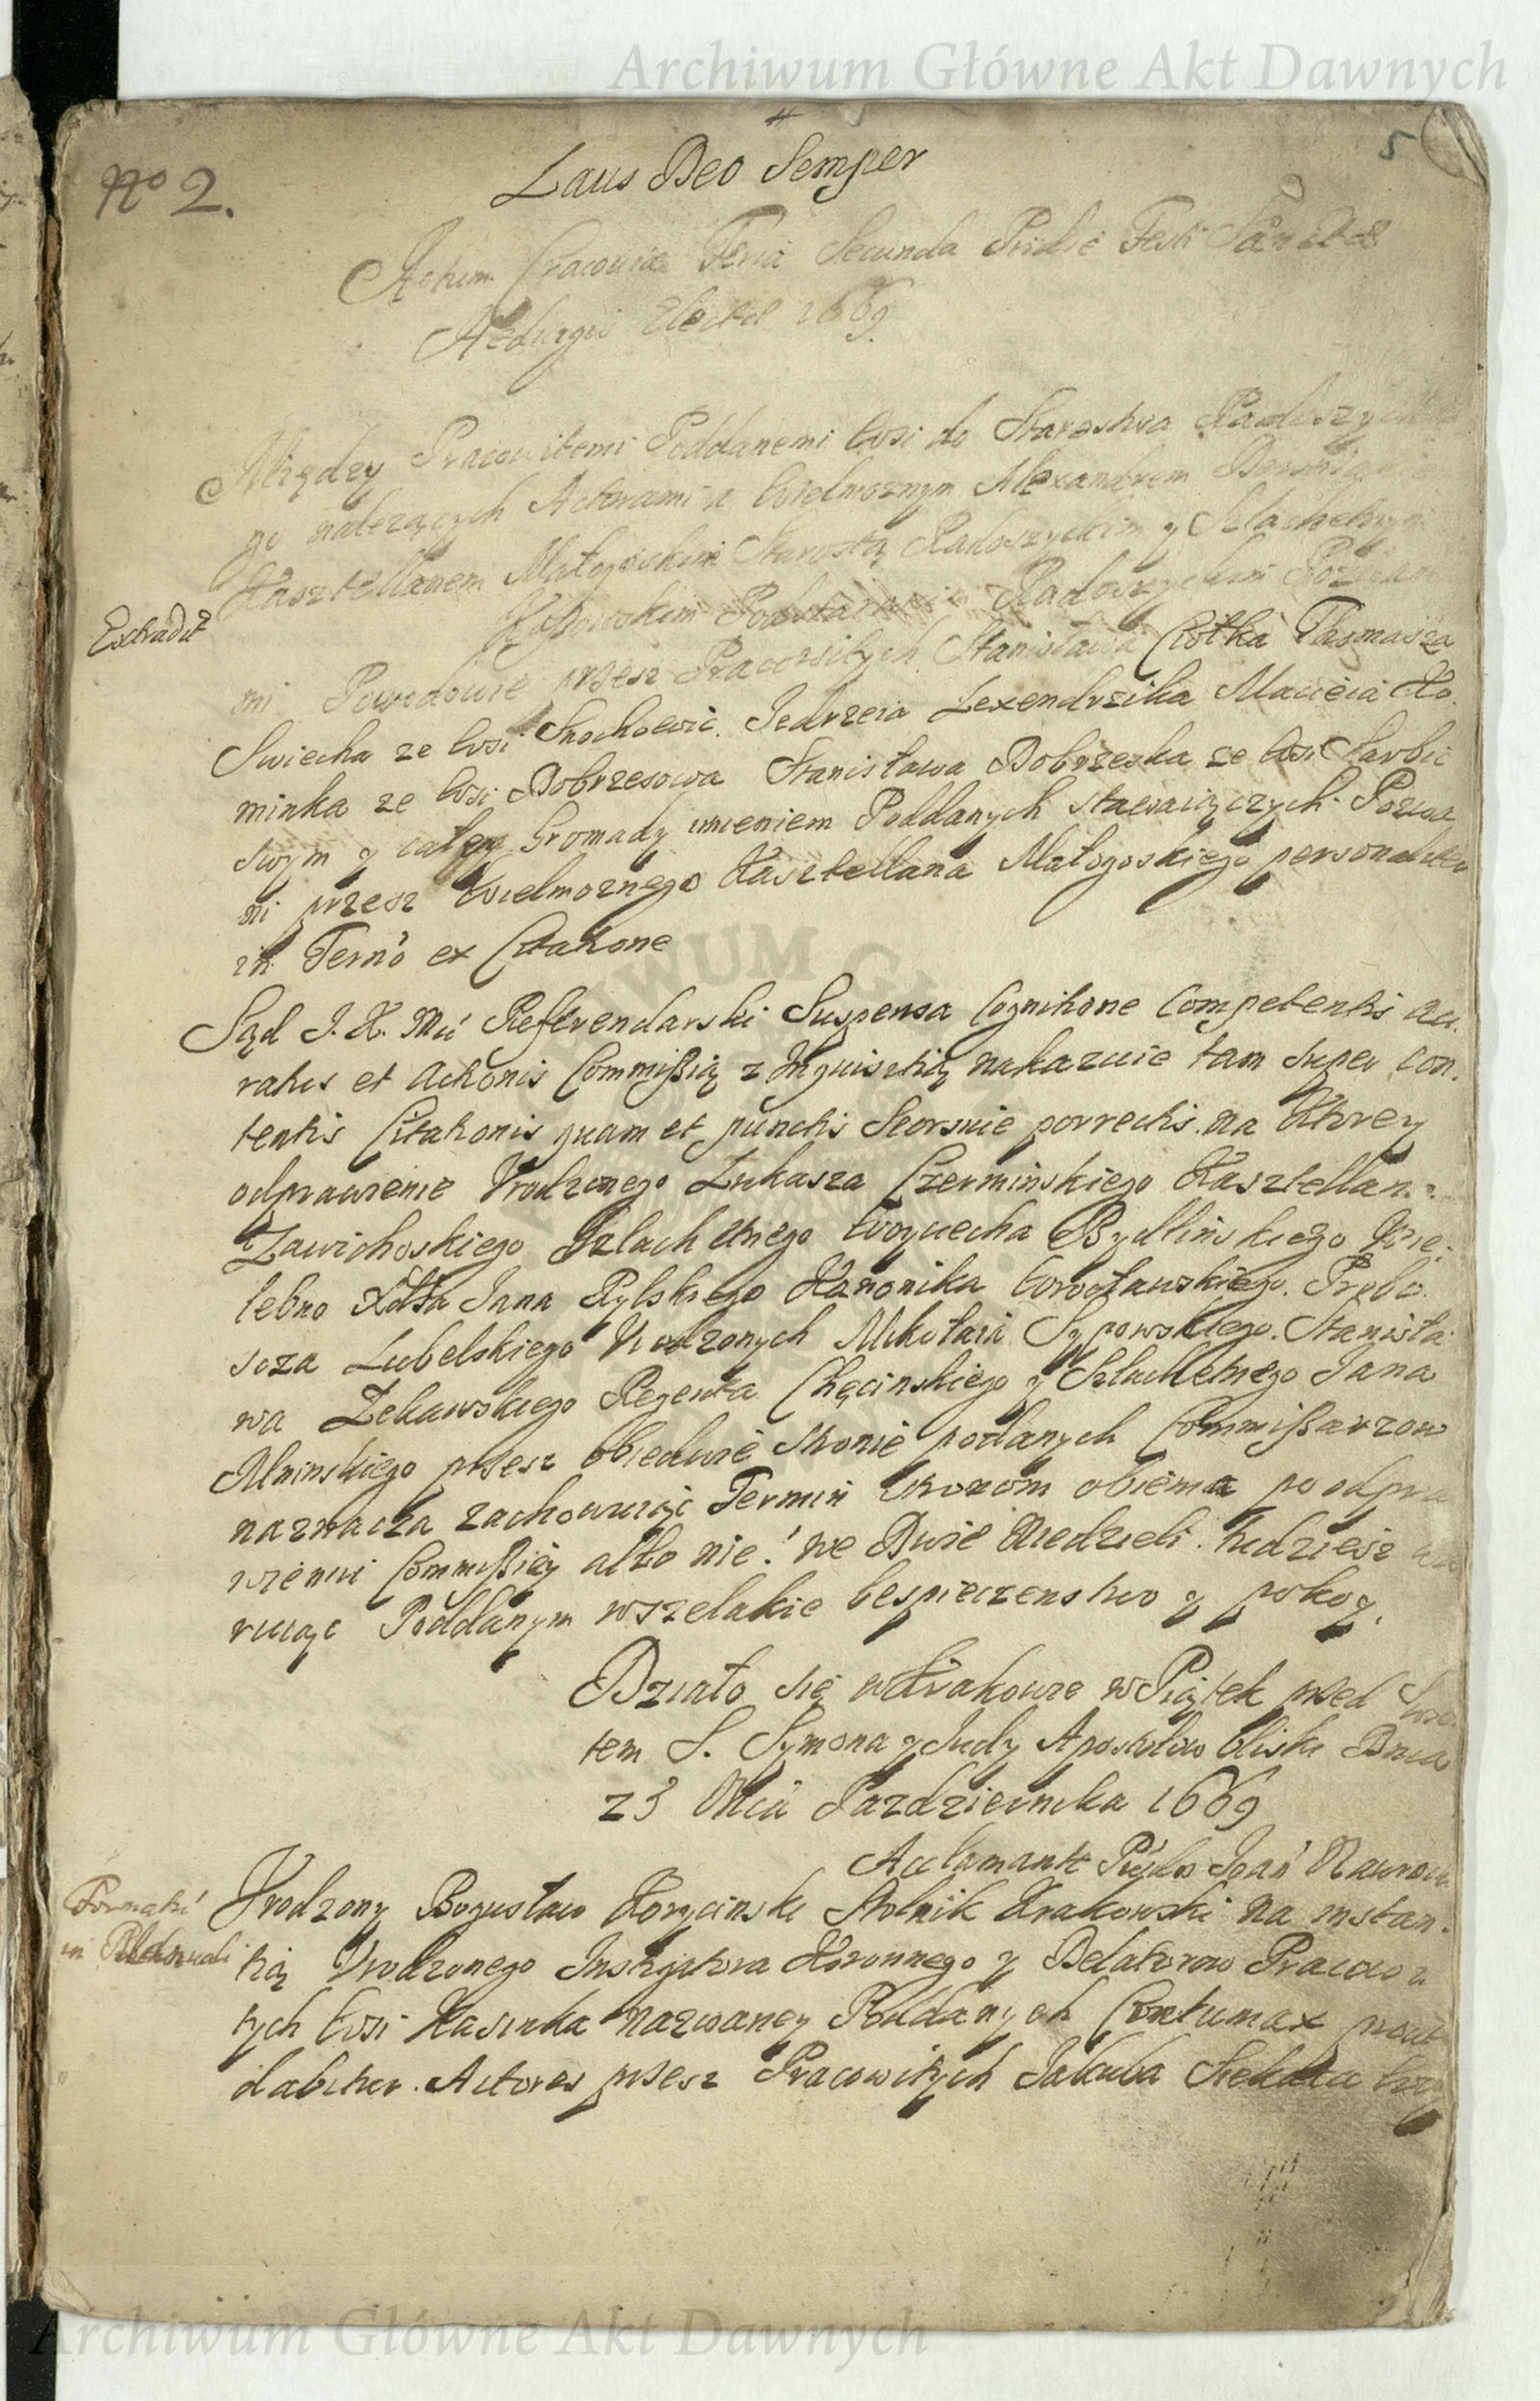 Archiwum Główne Akt Dawnych
5
No 2.
Laus Deo Semper
Actum Cracoviæ Feria Secunda Pridie Festi Sanctæ
Hedvigis Electæ 1669.
Między Pracowitemi Poddanemi Wsi do Starostwa Radoszyckie
go należących Actorami a Wielmoznym Alexandrem
Kasztellanem Małogoskim Starostą Radoszyckim y Szlachetnym
Podstaroscim Radoszyckim Pozwane
Extradit
mi Powodowie przez Pracowitych Stanisława Ciołka Thomasza
Swiecha ze Wsi Snochowic. Jedrzeia Lexendrzika Macieia Ko
minka ze Wsi Dobrzesowa Stanisława Dobrzeska ze Wsi Sarbic
swym y całey Gromady imieniem Poddanych stawaiączych. Pozwa
ni przez Wielmoznego Kasztellana Małogoskiego personaliter
in Term̃o ex Citatione
Sąd J. K. Mci Referendarski Suspensa Cognitione Competentis Au
ratus et Actonis Commißią z Inquisitią nakazuie tam super con
tentis Citationis quam et punctis Seorsive porrectis. na Ktorey
odprawienie Vrodzonego Łukasza Czerminskiego Kasztellana
Zawichoskiego Szlachetnego Woyciecha Bydlinskiego Wie
lebno Xdza Jana Rylskiego Kanonika Wrocławskiego. Probo
scza Lubelskiego Vrodzonych Mikołaia Sypowskiego. Stanisła
wa Żelawskiego Regenta Chęcinskiego y Szlachetnego Jana
Mninskiego przez obiedwie Stronie podanych Commißarzow
naznacza zachowuiąc Termin stronom obiema po odpra
wieniu Commißiey albo nie! we Dwie Niedzieli. tudziesz wa
ruiąc Poddanym wszelakie bespieczenstwo y pokoy.
Działo się w Krakowie w Piątek przed Swie
tem S. Symona y Judy Apostołow bliski Dnia
23 Mcá Pazdziernika 1669
Acclamante
Vrodzony Bogusław Korycinski Stolnik Krakowski na instan
tią Vrodzonego Instygatora Koronnego y Delatorow Pracowi
tych Wsi Kasinka nazwaney Poddanych Contumax prout
dabitur. Actores przez Pracowitych Jakuba
Archiwum Główne Akt Dawnych